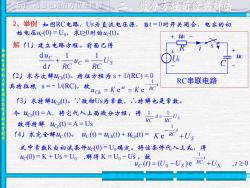 2、举例 如图RC电路,Us为直流电压源。当t=0时开关闭合,电容的初
始电压uC(0)=U0。求t≥0时的uC(t)。
解(1)建立电路方程。前面已得
duC/dt + 1/RC uC = 1/RC US
(2)求齐次解uCh(t)。特征方程为 s+1/(RC)=0
其特征根 s=-1/(RC),故 uCh = K e^st = K e^(-t/RC)
(3)求特解uCp(t)。∵激励Us为常数,∴特解也是常数。
令 uCp(t)=A,将它代入上面微分方程,得 1/RC A = 1/RC US
故得特解 uCp(t)=A=Us
(4)求完全解uC(t)。uC(t)=uCh(t)+uCp(t)= K e^(-t/RC) + US
式中常数K由初式条件uC(0)=U0确定。将该条件代入上式,得
uC(0)=K+Us=U0,解得K=U0-Us,故
uC(t)=(U0-US) e^(-t/RC) + US ,t≥0
uR
R
US
C
uC
RC串联电路